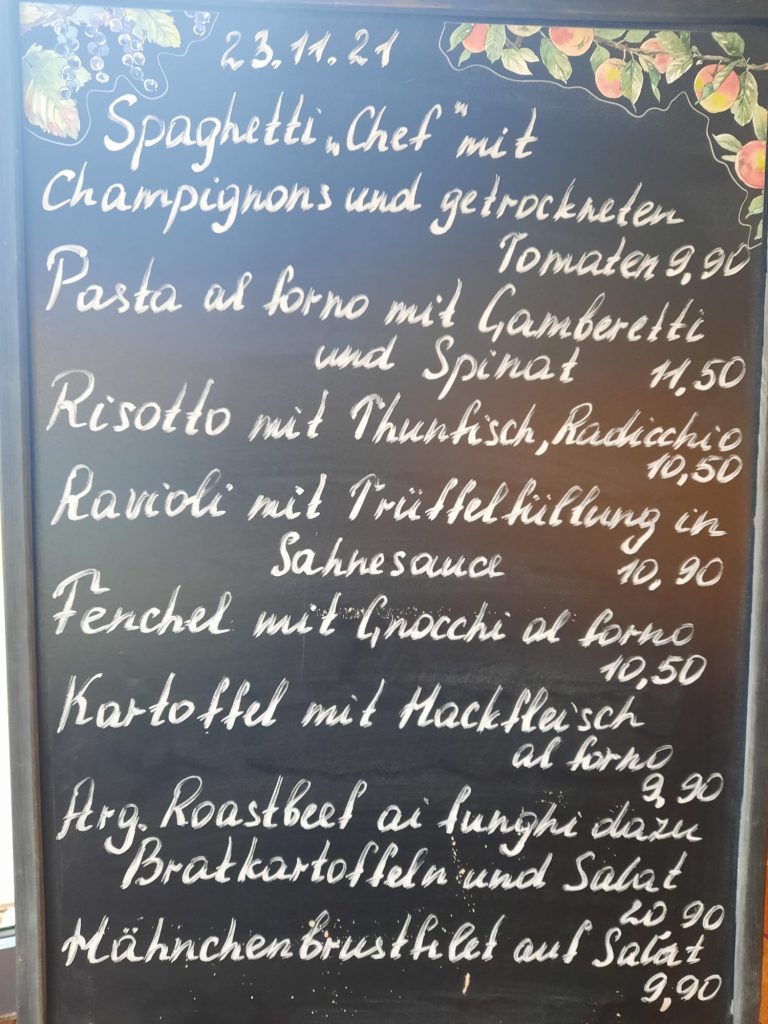 23.11.21
Spaghetti „Chef" mit
Champignons und getrockneten
Tomaten 9,90
Pasta al forno mit Gamberetti
und Spinat 11,50
Risotto mit Thunfisch, Radicchio
10,50
Ravioli mit Trüffelfüllung in
Sahnesauce 10,90
Fenchel mit Gnocchi al forno
10,50
Kartoffel mit Hackfleisch
al forno
9,90
Arg. Roastbeef ai funghi dazu
Bratkartoffeln und Salat
20 90
Hähnchenbrustfilet auf Salat
9,90